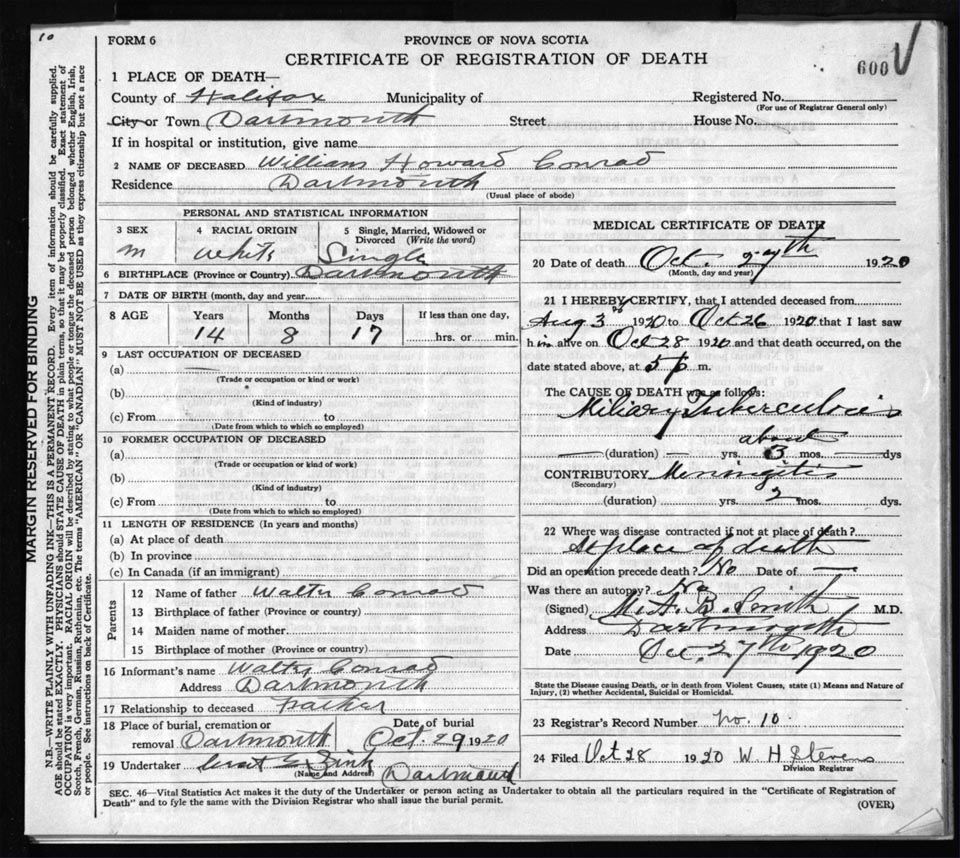 10
FORM 6
PROVINCE OF NOVA SCOTIA
CERTIFICATE OF REGISTRATION OF DEATH
600
1 PLACE OF DEATH—
County of Halifax Municipality of Registered No.
(For use of Registrar General only)
City or Town Dartmouth Street House No.
If in hospital or institution, give name
2 NAME OF DECEASED William Howard Conrad
Residence Dartmouth
(Usual place of abode)
PERSONAL AND STATISTICAL INFORMATION
3 SEX 4 RACIAL ORIGIN 5 Single, Married, Widowed or
Divorced (Write the word)
m White Single
6 BIRTHPLACE (Province or Country) Dartmouth
7 DATE OF BIRTH (month, day and year)
8 AGE Years Months Days If less than one day,
14 8 17 hrs. or min.
9 LAST OCCUPATION OF DECEASED
(a)
(Trade or occupation or kind or work)
(b)
(Kind of industry)
(c) From to
(Date from which to which so employed)
10 FORMER OCCUPATION OF DECEASED
(a)
(Trade or occupation or kind of work)
(b)
(Kind of industry)
(c) From to
(Date from which to which so employed)
11 LENGTH OF RESIDENCE (In years and months)
(a) At place of death
(b) In province
(c) In Canada (if an immigrant)
Parents
12 Name of father Walter Conrad
13 Birthplace of father (Province or country)
14 Maiden name of mother
15 Birthplace of mother (Province or country)
16 Informant's name Walter Conrad
Address Dartmouth
17 Relationship to deceased Father
18 Place of burial, cremation or Date of burial
removal Dartmouth Oct. 29 1920
19 Undertaker Dartmouth
(Name and Address)
MEDICAL CERTIFICATE OF DEATH
20 Date of death Oct. 27th 1920
(Month, day and year)
21 I HEREBY CERTIFY, that I attended deceased from
Aug 3rd 1920 to Oct 26 1920 that I last saw
him alive on Oct 28 1920 and that death occurred, on the
date stated above, at 5 p m.
The CAUSE OF DEATH was as follows:
Miliary Tuberculosis
about
(duration) yrs. 3 mos. dys
CONTRIBUTORY Meningitis
(Secondary)
(duration) yrs. 2 mos. dys.
22 Where was disease contracted if not at place of death?
At place of death
Did an operation precede death? No Date of —
Was there an autopsy? No
(Signed) B. Smith M.D.
Address Dartmouth
Date Oct. 27th 1920
State the Disease causing Death, or in death from Violent Causes, state (1) Means and Nature of
Injury, (2) whether Accidental, Suicidal or Homicidal.
23 Registrar's Record Number No. 10.
24 Filed Oct 28 1920 W H Stevens
Division Registrar
SEC. 46—Vital Statistics Act makes it the duty of the Undertaker or person acting as Undertaker to obtain all the particulars required in the "Certificate of Registration of
Death" and to fyle the same with the Division Registrar who shall issue the burial permit.
(OVER)
MARGIN RESERVED FOR BINDING
N.B.—WRITE PLAINLY WITH UNFADING INK—THIS IS A PERMANENT RECORD. Every item of information should be carefully supplied.
AGE should be stated EXACTLY. PHYSICIANS should STATE CAUSE OF DEATH in plain terms, so that it may be properly classified. Exact statement of
OCCUPATION is very important. RACIAL ORIGIN will be described by stating to what people or tongue the deceased person belonged whether English, Irish,
Scotch, French, German, Russian, Ruthenian, etc. The terms "AMERICAN" OR "CANADIAN" MUST NOT BE USED as they express citizenship but not a race
or people. See instructions on back of Certificate.